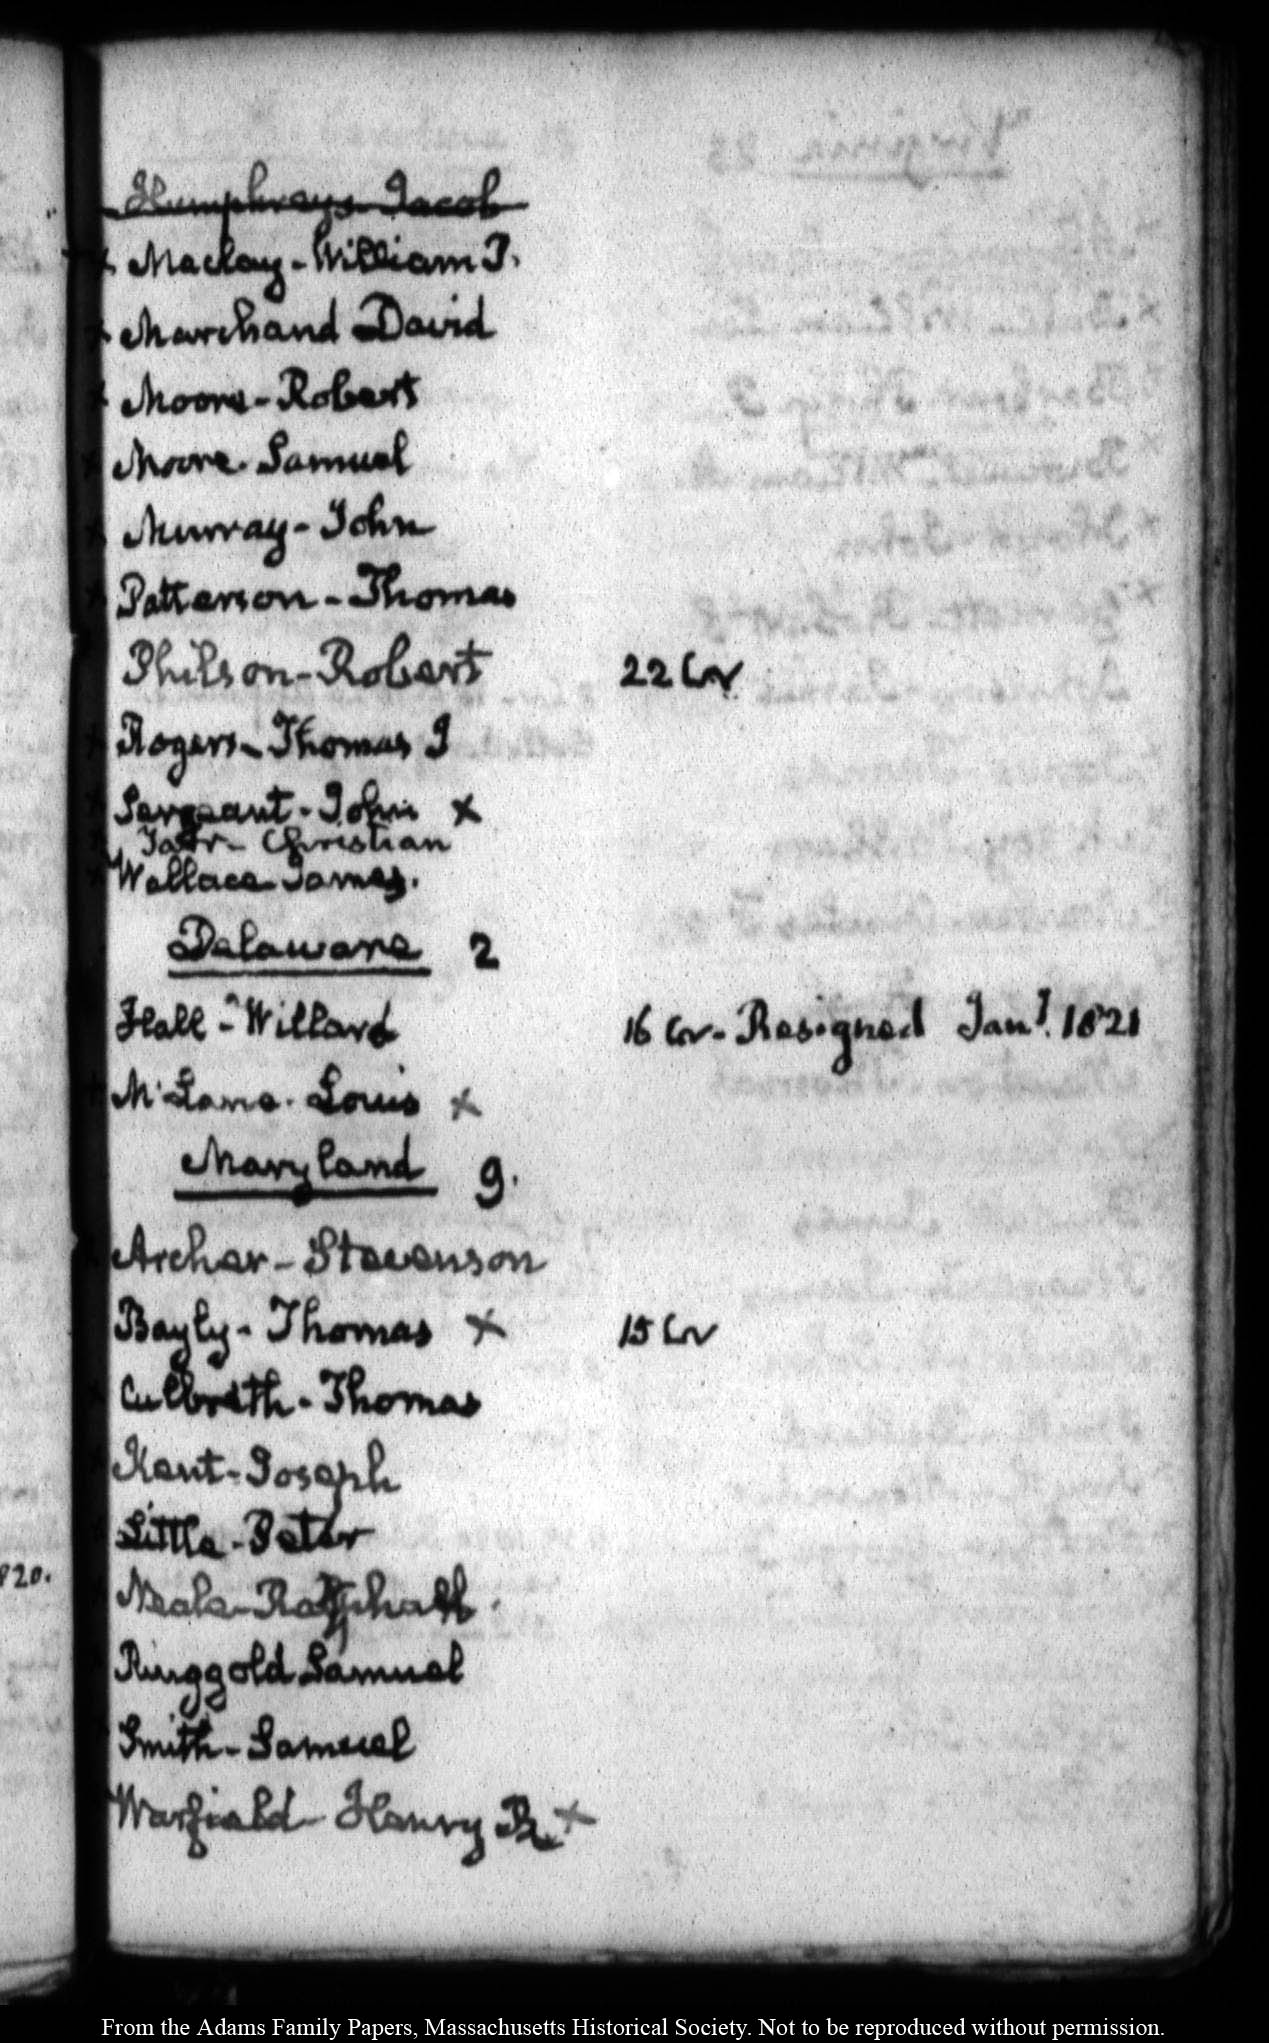 Humphrays Jacob
x Maclay - William P.
x Marchand David
x Moore - Robert
x Moore. Samuel
x Murray - John
x Patterson - Thomas
Philson - Robert 22 Cr
x Rogers - Thomas J
x Sergeant - John x
x Tarr - Christian
x Wallace James.
Delaware 2
Hall - Willard 16 Cr - Resigned Jany. 1821
x McLane. Louis x
Maryland 9.
Archer - Stevenson
Bayly - Thomas x 15 Cr
x Culbreth - Thomas
Kent - Joseph
Little - Peter
820.
Neale - Raphaell.
Ringgold Samuel
Smith - Samuel
Warfield - Henry R x
From the Adams Family Papers, Massachusetts Historical Society. Not to be reproduced without permission.